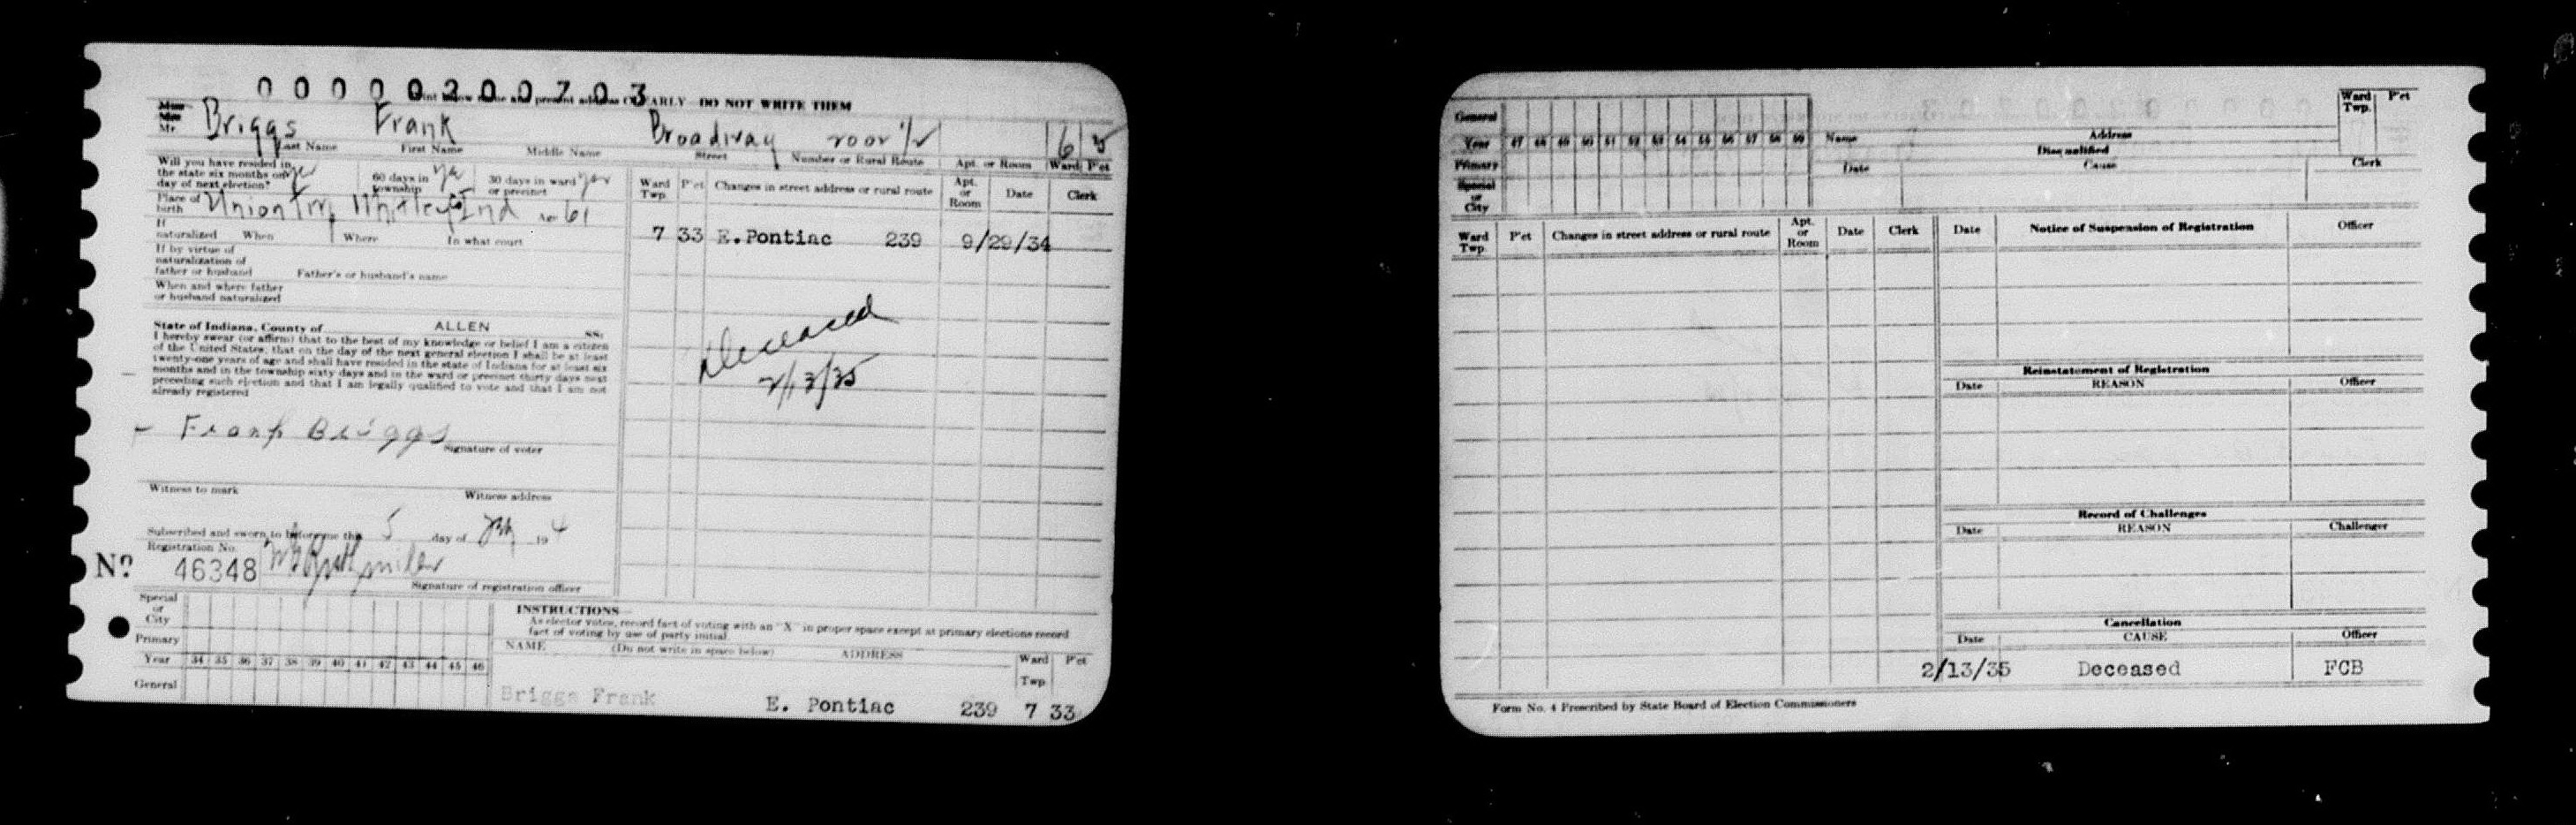 00000200703
Print below name and present address CLEARLY DO NOT WRITE THEM
Miss
Mrs.
Mr.
Briggs Frank Broadway 2001 1/2 6
Last Name First Name Middle Name Street Number or Rural Route Apt. or Room Ward P'ct
Will you have resided in
the state six months on
day of next election? yes
60 days in
township yes
30 days in ward
or precinct yes
Place of
birth Union Twp Whitley Co Ind Age 61
If
naturalized When Where In what court
If by virtue of
naturalization of
father or husband Father's or husband's name
When and where father
or husband naturalized
State of Indiana, County of ALLEN SS:
I hereby swear (or affirm) that to the best of my knowledge or belief I am a citizen
of the United States; that on the day of the next general election I shall be at least
twenty-one years of age and shall have resided in the state of Indiana for at least six
months and in the township sixty days and in the ward or precinct thirty days next
preceding such election and that I am legally qualified to vote and that I am not
already registered
Frank Briggs
Signature of voter
Witness to mark Witness address
Subscribed and sworn to before me this 5 day of 19 4
Registration No.
Nº 46348
Signature of registration officer
Ward
Twp. P'ct Changes in street address or rural route Apt.
or
Room Date Clerk
7 33 E. Pontiac 239 9/29/34
Deceased
2/13/35
Special
or
City
Primary
Year 34 35 36 37 38 39 40 41 42 43 44 45 46
General
INSTRUCTIONS—
As elector votes, record fact of voting with an "X" in proper space except at primary elections record
fact of voting by use of party initial.
NAME (Do not write in space below) ADDRESS Ward
Twp. P'ct
Briggs Frank E. Pontiac 239 7 33
General
Year 47 48 49 50 51 52 53 54 55 56 57 58 59
Primary
Special
or
City
Name Address Ward
Twp. P'ct
Disqualified
Date Cause Clerk
Ward
Twp. P'ct Changes in street address or rural route Apt.
or
Room Date Clerk
Date Notice of Suspension of Registration Officer
Reinstatement of Registration
Date REASON Officer
Record of Challenges
Date REASON Challenger
Cancellation
Date CAUSE Officer
2/13/35 Deceased FCB
Form No. 4 Prescribed by State Board of Election Commissioners